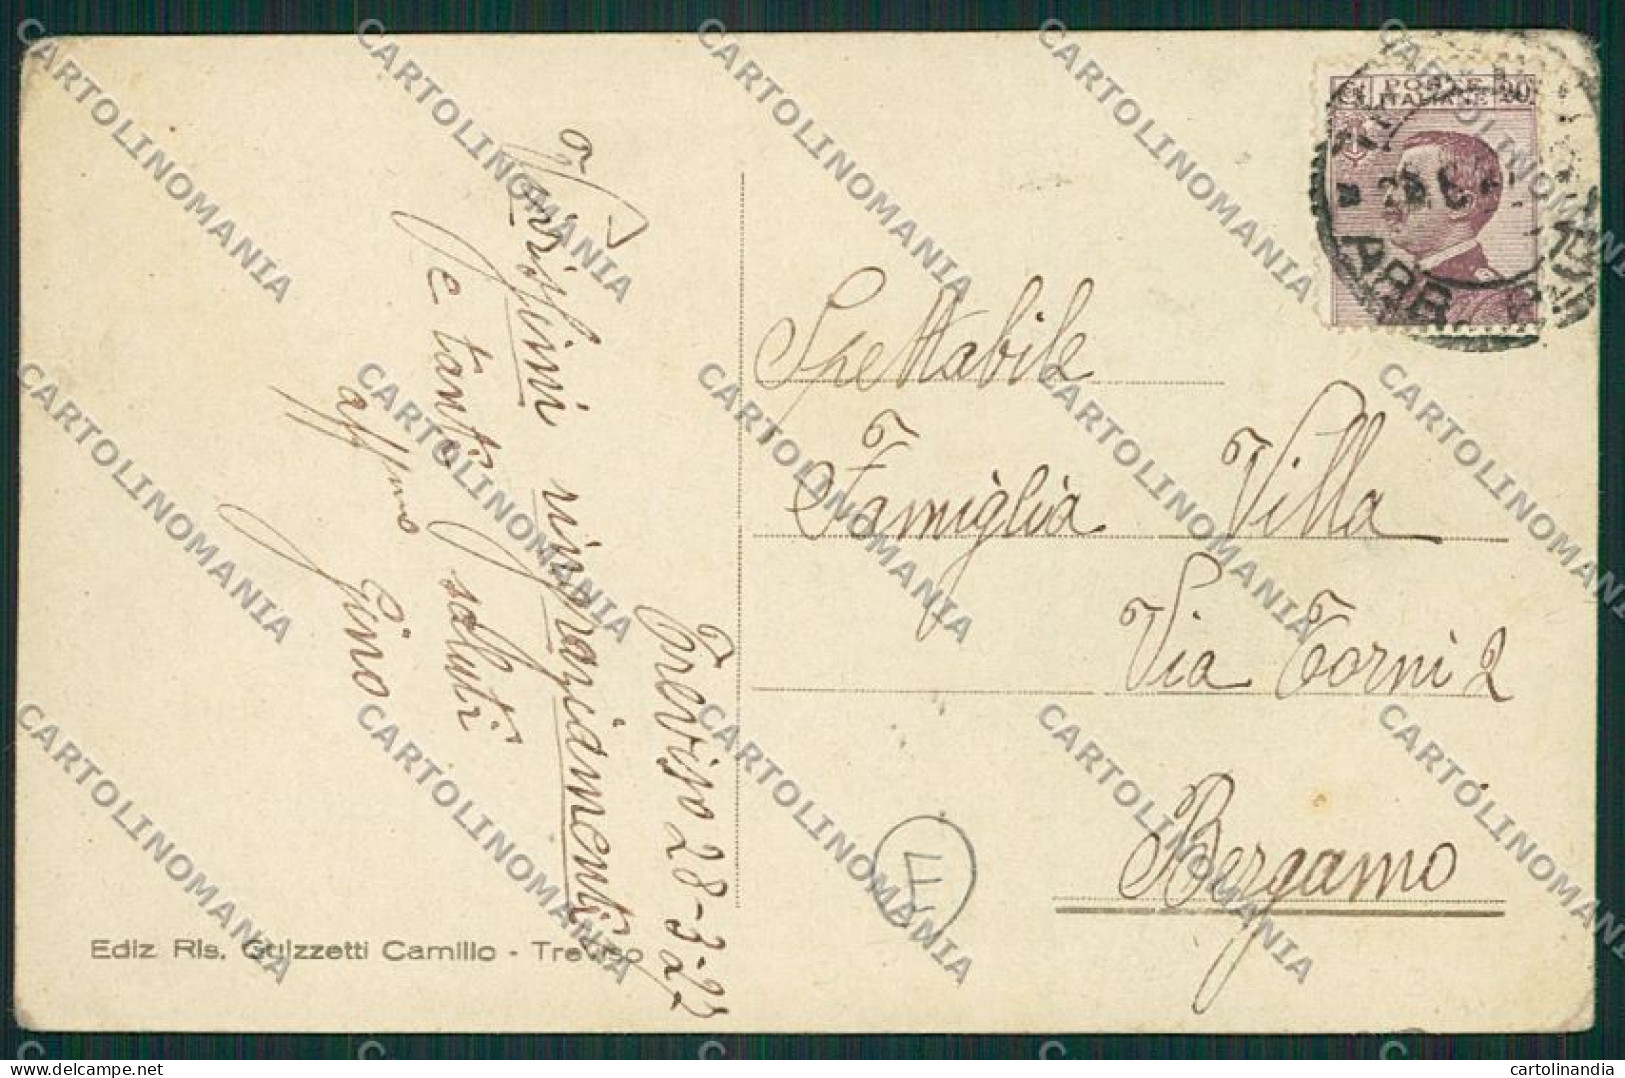 Treviso 28-3-27
Vivissimi ringraziamenti
e tanti saluti
aff/mo
Gino
Spettabile
Famiglia Villa
Via Torni 2
Bergamo
Ediz. Ris. Guizzetti Camillo - Treviso
POSTE
ITALIANE
CARTOLINOMANIA
cartolinandia